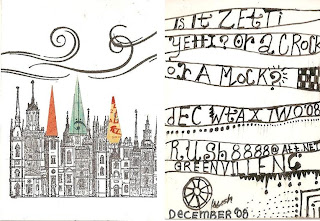 is it ZETTI
YETTI? or a CROCK
or A MOCK?
dEC WTAX TWO '08
R.U.Sh8888@ATT.NET
GREENVILLE NC
Rush
DECEMBER '08